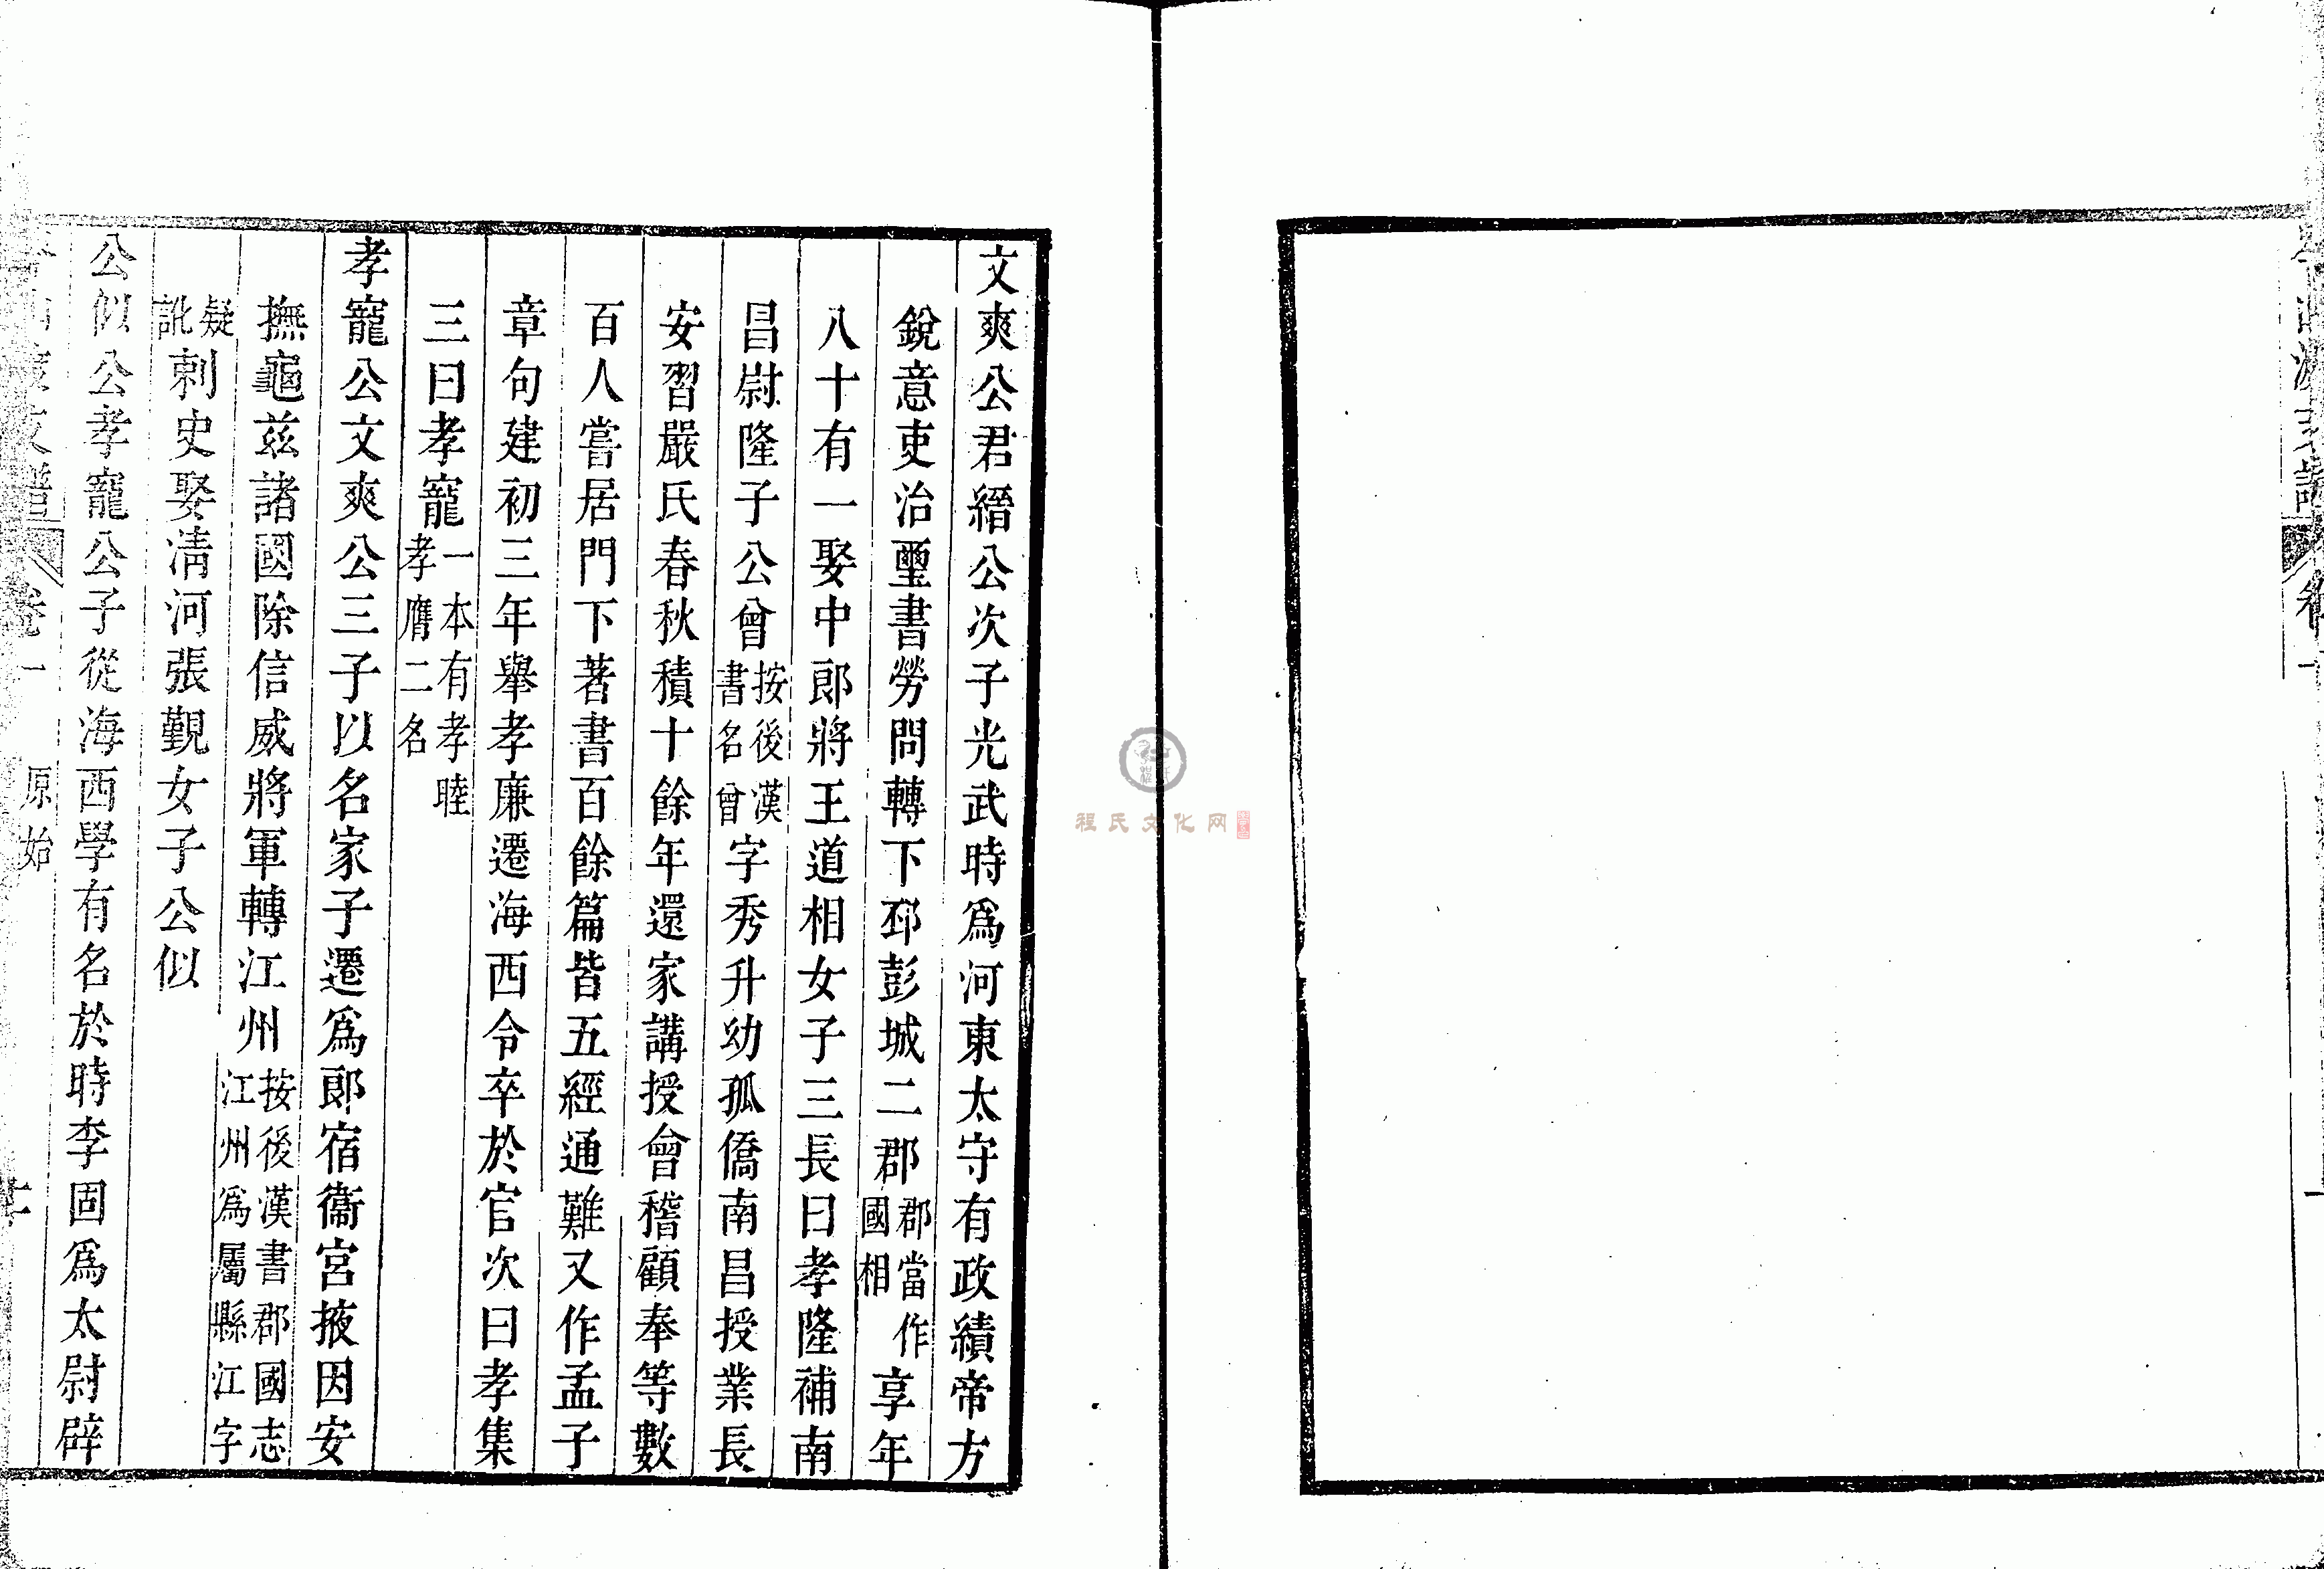 文爽公君縉公次子光武時爲河東太守有政績帝方
銳意吏治璽書勞問轉下邳彭城二郡郡當作國相享年
八十有一娶中郎將王道相女子三長曰孝隆補南
昌尉隆子公曾按後漢書名曾字秀升幼孤僑南昌授業長
安習嚴氏春秋積十餘年還家講授會稽顧奉等數
百人嘗居門下著書百餘篇皆五經通難又作孟子
章句建初三年舉孝廉遷海西令卒於官次曰孝集
三曰孝寵一本有孝睦孝膺二名
孝寵公文爽公三子以名家子遷爲郎宿衞宮掖因安
撫龜茲諸國除信威將軍轉江州按後漢書郡國志江州爲屬縣江字
疑訛刺史娶清河張觀女子公似
公似公孝寵公子從海西學有名於時李固爲太尉辟
文譜 卷一 原始
程氏文化网